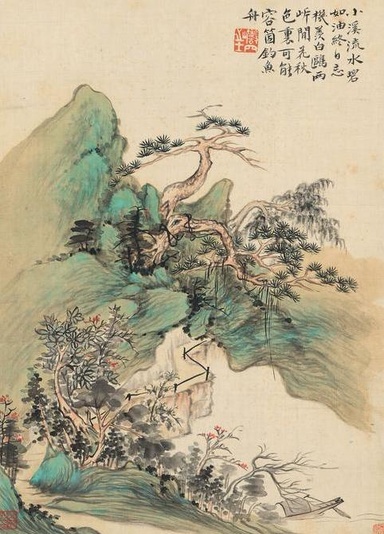 小溪流水碧
如油終日忘
機羡白鷗兩
岸閒花秋
色裏可能
容箇釣魚
舟